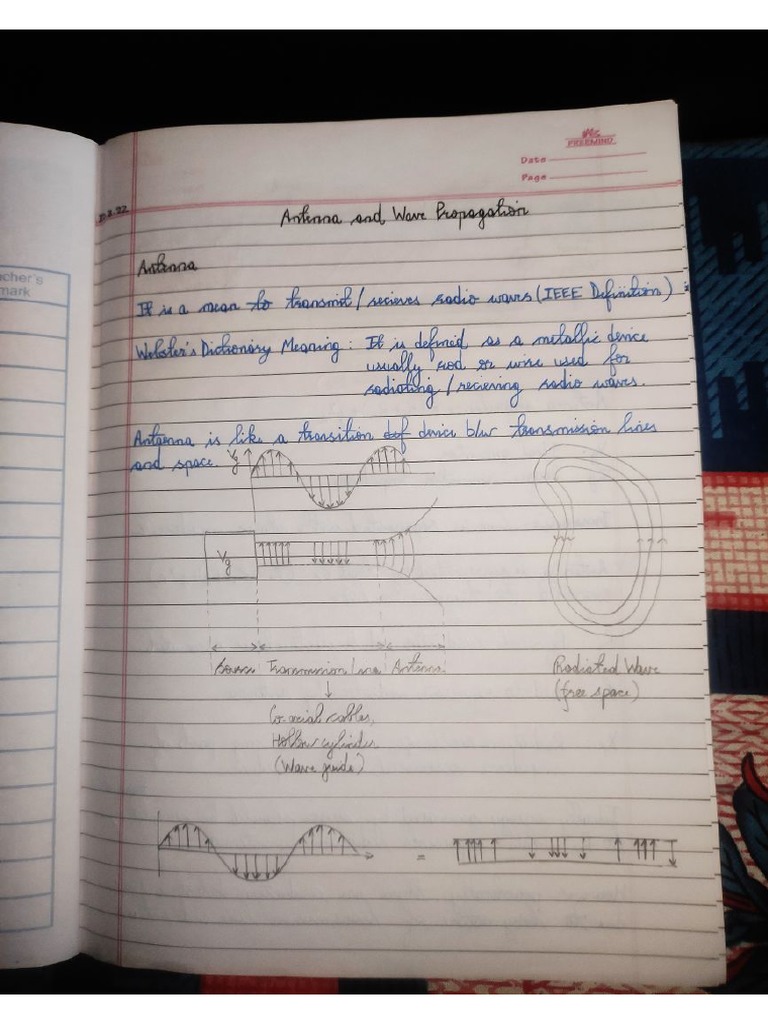 FREEMIND
Date
Page
Antenna and Wave Propagation
Antenna
It is a mean to transmit/recieves radio waves (IEEE Definition) :
Webster's Dictionary Meaning : It is defined as a metallic device
usually rod or wire used for
radiating/recieving radio waves.
Antaenna is like a transition def device b/w transmission lines
and space. Vg
Vg
Source Transmission line Antenna
Radiated Wave
(free space)
Co-axial cables,
Hollow cylinder
(Wave guide)
=
cher's
mark